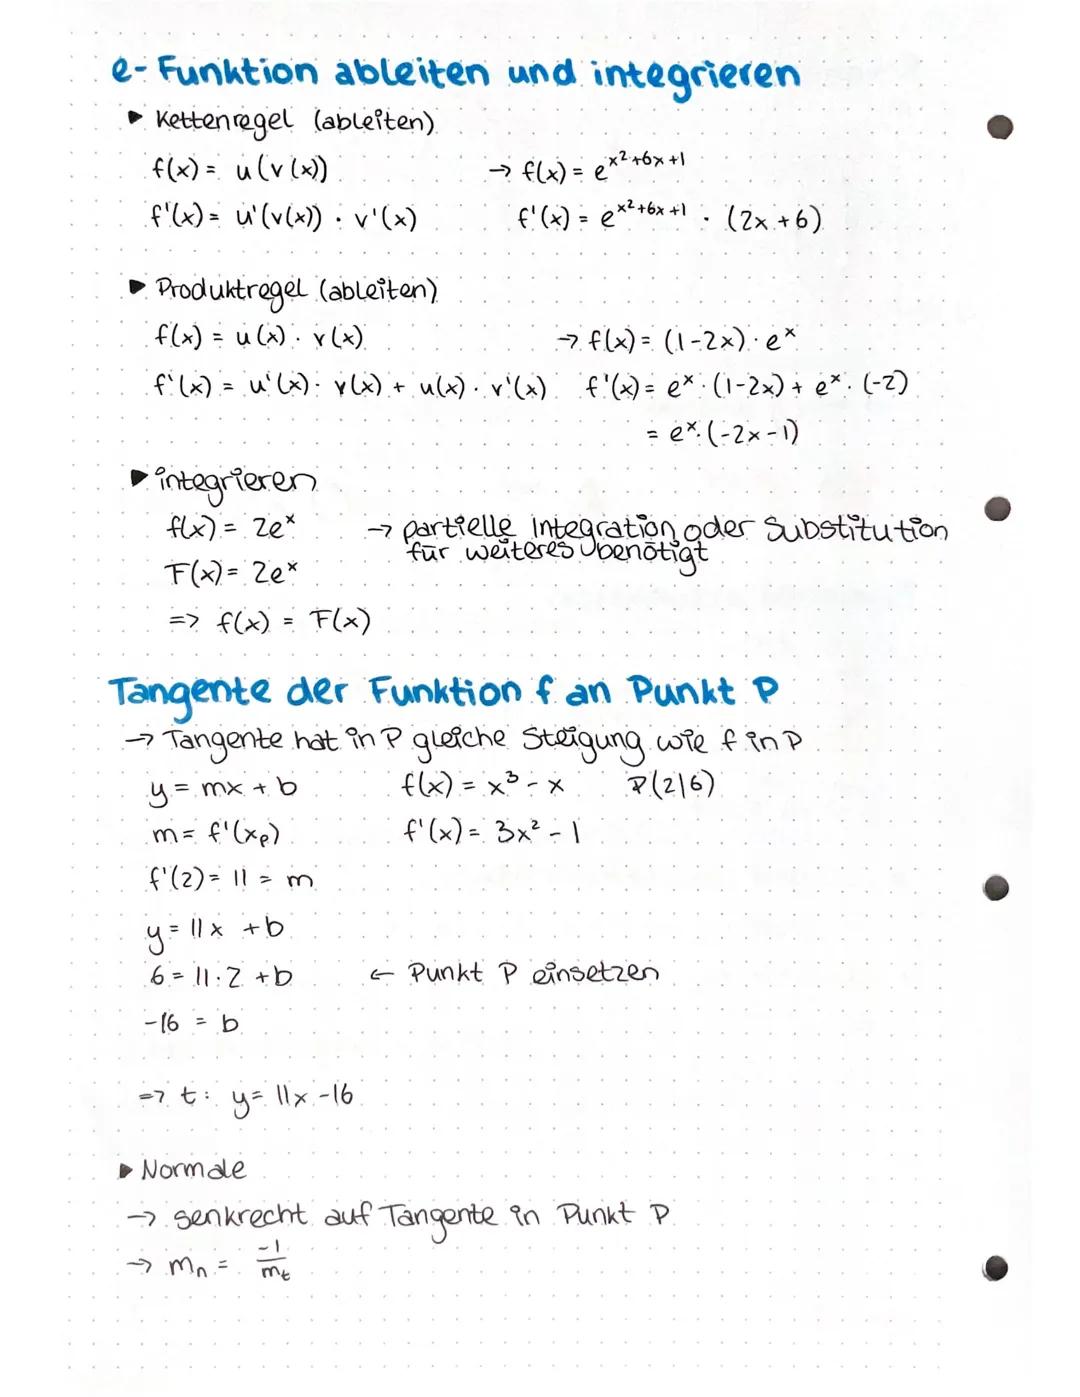 e- Funktion ableiten und integrieren
▶ Kettenregel (ableiten)
f(x) = u(v(x)) → f(x) = e^(x²+6x+1)
f'(x) = u'(v(x)) · v'(x) f'(x) = e^(x²+6x+1) · (2x+6)
▶ Produktregel (ableiten)
f(x) = u(x) · v(x) → f(x) = (1-2x) · e^x
f'(x) = u'(x) · v(x) + u(x) · v'(x) f'(x) = e^x · (1-2x) + e^x · (-2)
= e^x · (-2x-1)
▶ integrieren
f(x) = 2e^x → partielle Integration oder Substitution
für weiteres benötigt
F(x) = 2e^x
=> f(x) = F(x)
Tangente der Funktion f an Punkt P
→ Tangente hat in P gleiche Steigung wie f in P
y = mx + b f(x) = x³ - x P(2|6)
m = f'(x_P) f'(x) = 3x² - 1
f'(2) = 11 = m
y = 11x + b
6 = 11 · 2 + b ← Punkt P einsetzen
-16 = b
=> t: y = 11x - 16
▶ Normale
→ senkrecht auf Tangente in Punkt P
→ m_n = -1/m_t